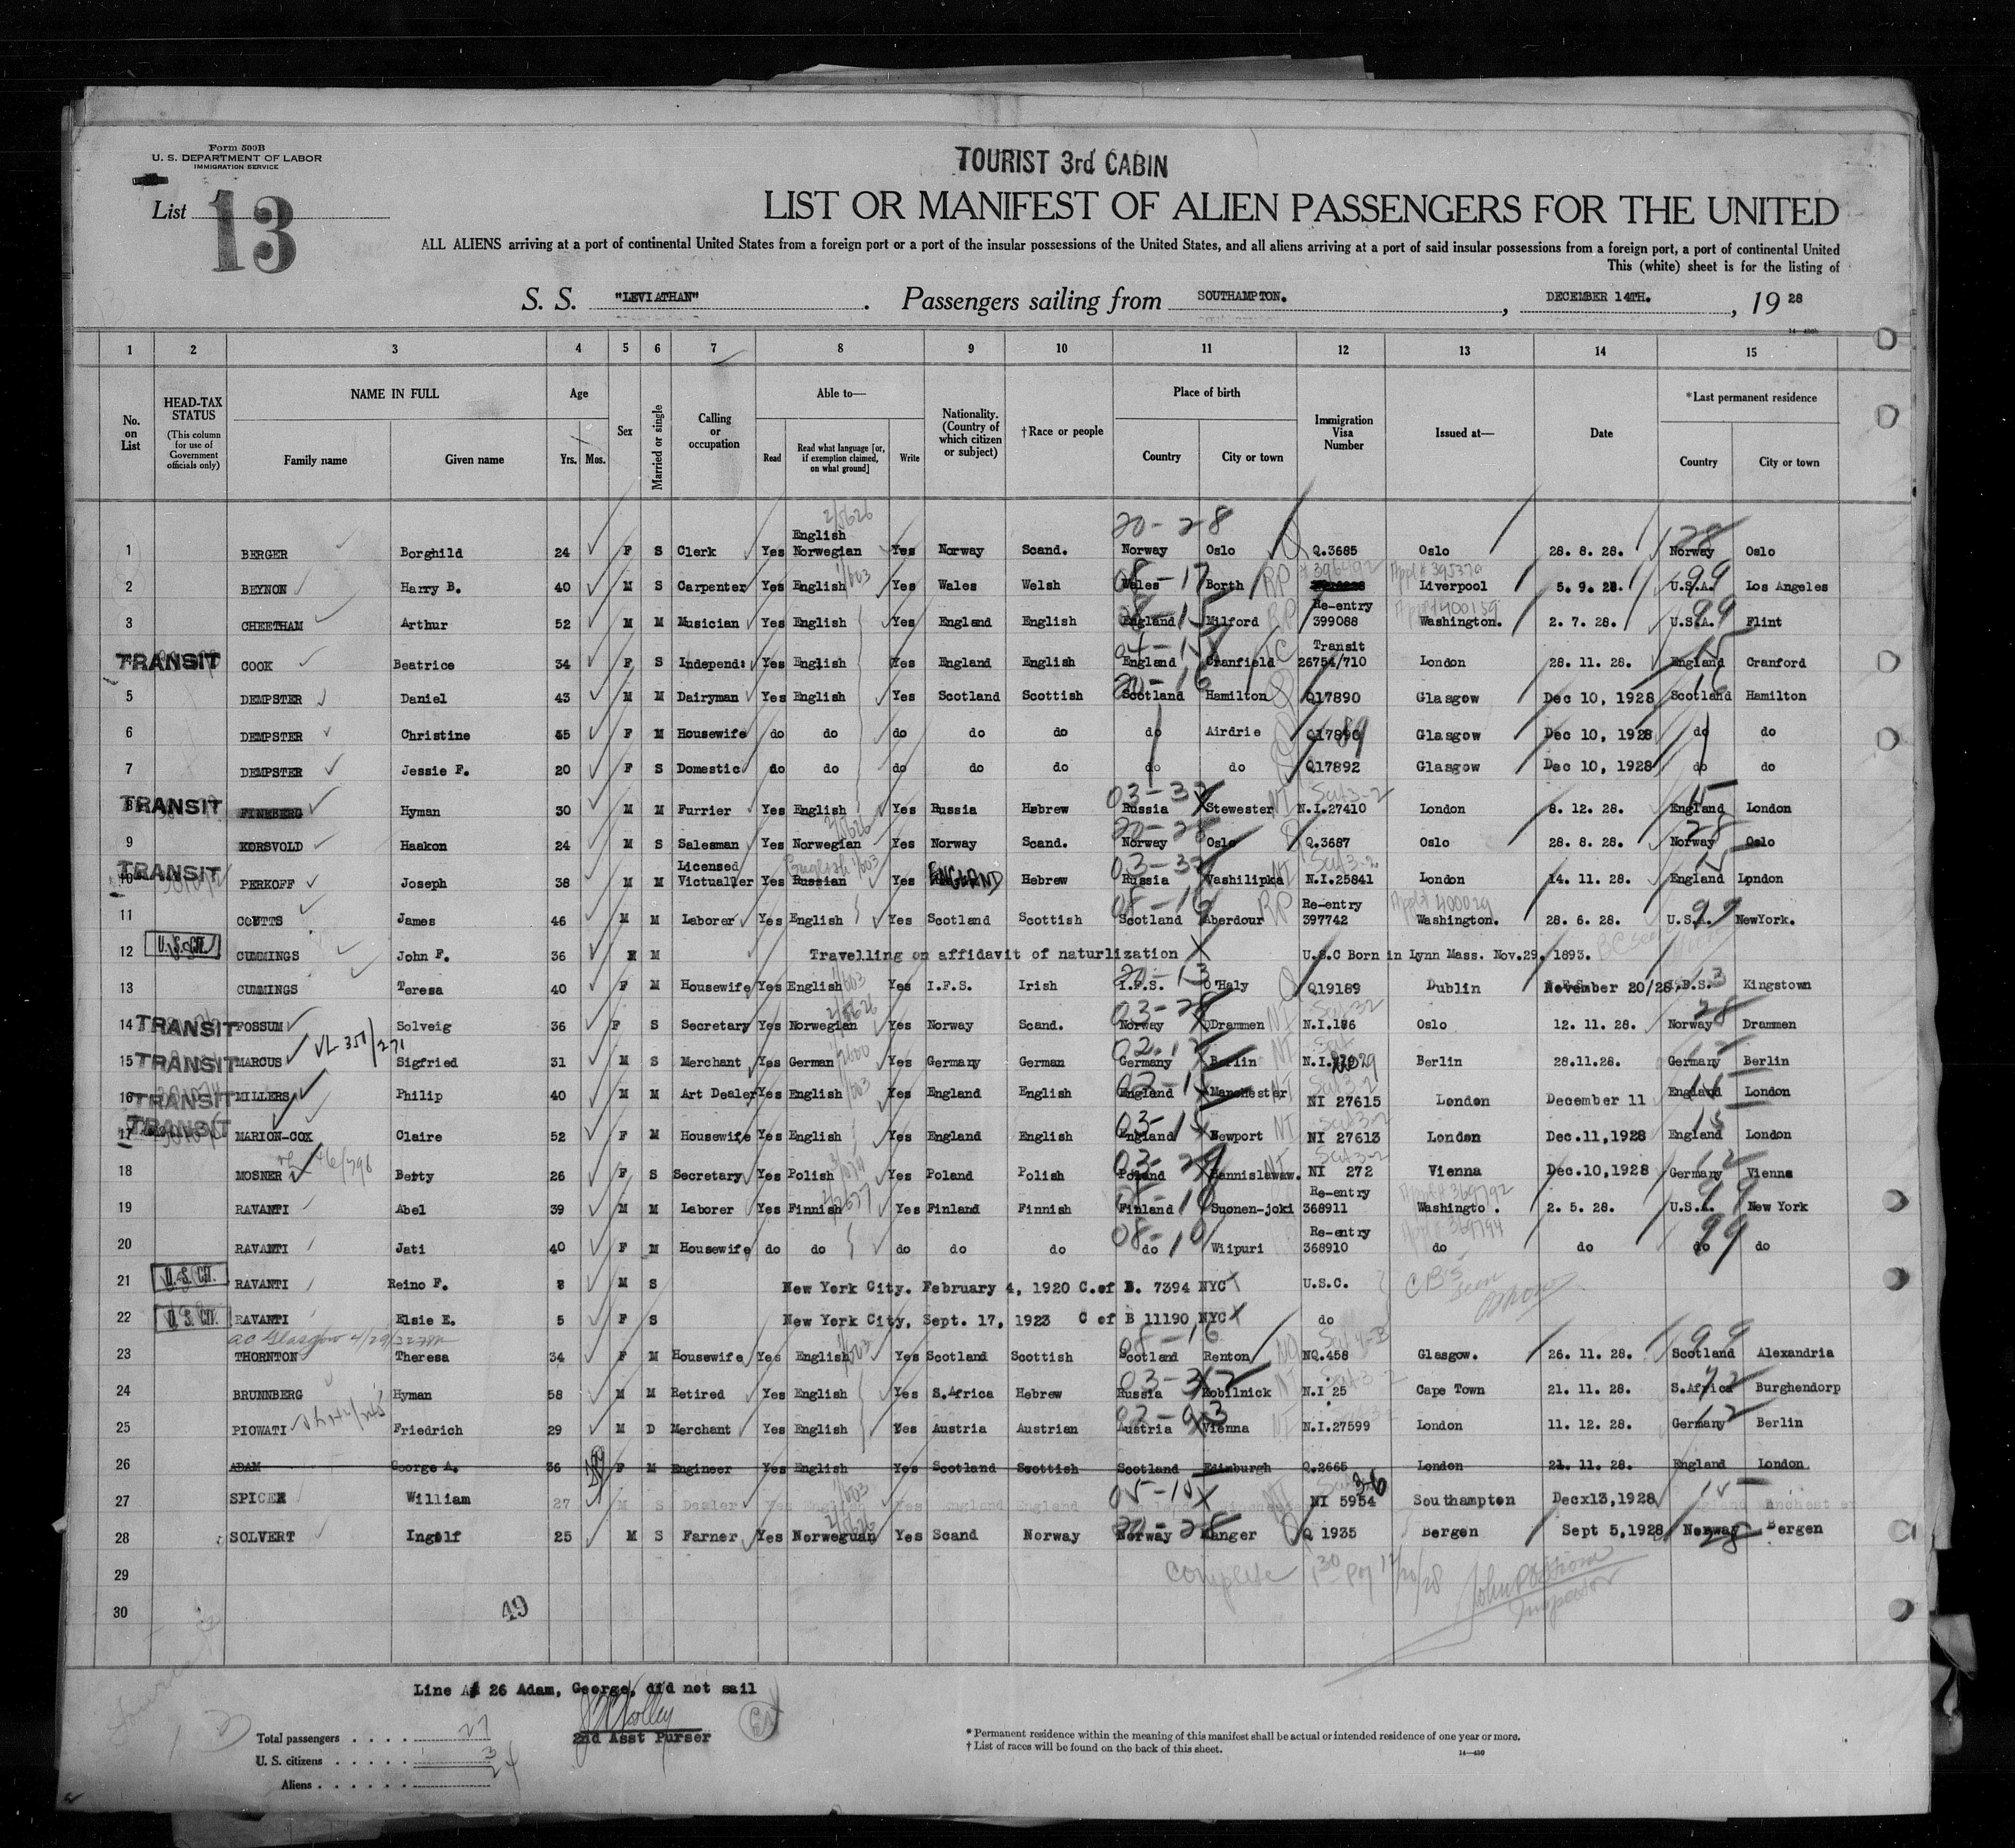 Form 500B
U. S. DEPARTMENT OF LABOR
IMMIGRATION SERVICE
List 13
TOURIST 3rd CABIN
LIST OR MANIFEST OF ALIEN PASSENGERS FOR THE UNITED
ALL ALIENS arriving at a port of continental United States from a foreign port or a port of the insular possessions of the United States, and all aliens arriving at a port of said insular possessions from a foreign port, a port of continental United
This (white) sheet is for the listing of
S. S. "LEVIATHAN" . Passengers sailing from SOUTHAMPTON. , DECEMBER 14TH. , 19 28
1 2 3 4 5 6 7 8 9 10 11 12 13 14 15
No. on List
HEAD-TAX STATUS (This column for use of Government officials only)
NAME IN FULL Family name Given name
Age Yrs. Mos.
Sex
Married or single
Calling or occupation
Able to— Read Read what language [or, if exemption claimed, on what ground] Write
Nationality. (Country of which citizen or subject)
†Race or people
Place of birth Country City or town
Immigration Visa Number
Issued at—
Date
*Last permanent residence Country City or town
20-28
1 BERGER Borghild 24 F S Clerk Yes English Norwegian Yes Norway Scand. Norway Oslo Q.3685 Oslo 28. 8. 28. Norway Oslo
2 BEYNON Harry B. 40 M S Carpenter Yes English Yes Wales Welsh Wales Borth RP Liverpool 5. 9. 28. U.S.A. 99 Los Angeles
3 CHEETHAM Arthur 52 M M Musician Yes English Yes England English England Milford RP Re-entry 399088 Washington. 2. 7. 28. U.S.A. 99 Flint
TRANSIT COOK Beatrice 34 F S Independ: Yes English Yes England English England Cranfield TC Transit 26754/710 London 28. 11. 28. England Cranford
5 DEMPSTER Daniel 43 M M Dairyman Yes English Yes Scotland Scottish Scotland Hamilton Q17890 Glasgow Dec 10, 1928 Scotland Hamilton
6 DEMPSTER Christine 55 F M Housewife do do do do do do Airdrie Q17890 89 Glasgow Dec 10, 1928 do do
7 DEMPSTER Jessie F. 20 F S Domestic do do do do do do do Q17892 Glasgow Dec 10, 1928 do do
8 TRANSIT FINEBERG Hyman 30 M M Furrier Yes English Yes Russia Hebrew Russia Stewester N.I.27410 London 8. 12. 28. England London
9 KORSVOLD Haakon 24 M S Salesman Yes Norwegian Yes Norway Scand. Norway Oslo Q.3687 Oslo 28. 8. 28. Norway Oslo
10 TRANSIT PERKOFF Joseph 38 M M Licensed Victualler Yes English Russian Yes ENGLAND Hebrew Russia Vashilipka N.I.25841 London 14. 11. 28. England London
11 COUTTS James 46 M M Laborer Yes English Yes Scotland Scottish Scotland Aberdour RP Re-entry 397742 Washington. 28. 6. 28. U.S.A. 99 NewYork.
12 U.S. CIT. CUMMINGS John F. 36 M M Travelling on affidavit of naturlization U.S.C Born in Lynn Mass. Nov.29, 1893.
13 CUMMINGS Teresa 40 F M Housewife Yes English Yes I.F.S. Irish I.F.S. O'Haly Q19189 Dublin November 20/28 I.F.S. Kingstown
14 TRANSIT FOSSUM Solveig 36 F S Secretary Yes Norwegian Yes Norway Scand. Norway Drammen N.I.186 Oslo 12. 11. 28. Norway Drammen
15 TRANSIT MARCUS Sigfried 31 M S Merchant Yes German Yes Germany German Germany Berlin Berlin 28.11.28. Germany Berlin
16 TRANSIT MILLERS Philip 40 M M Art Dealer Yes English Yes England English England Manchester NI 27615 London December 11 England London
17 TRANSIT MARION-COX Claire 52 F M Housewife Yes English Yes England English England Newport NI 27613 London Dec.11,1928 England London
18 MOSNER Betty 26 F S Secretary Yes Polish Yes Poland Polish Poland Hannislawaw. NI 272 Vienna Dec.10,1928 Germany Vienna
19 RAVANTI Abel 39 M M Laborer Yes Finnish Yes Finland Finnish Finland Suonen-joki Re-entry 368911 Washingto . 2. 5. 28. U.S.A. New York
20 RAVANTI Jati 40 F M Housewife do do do do do do Wiipuri Re-entry 368910 do do do 99 do
21 U.S. CIT. RAVANTI Reino F. 8 M S New York City. February 4, 1920 C.of B. 7394 NYC U.S.C.
22 U.S. CIT. RAVANTI Elsie E. 5 F S New York City, Sept. 17, 1923 C of B 11190 NYC do
23 THORNTON Theresa 34 F M Housewife Yes English Yes Scotland Scottish Scotland Renton NQ.458 Glasgow. 26. 11. 28. Scotland 99 Alexandria
24 BRUNNBERG Hyman 58 M M Retired Yes English Yes S.Africa Hebrew Russia Robilnick N.I 25 Cape Town 21. 11. 28. S.Africa Burghendorp
25 PIOWATI Friedrich 29 M D Merchant Yes English Yes Austria Austrian Austria Vienna N.I.27599 London 11. 12. 28. Germany Berlin
26 ADAM George A. 36 F M Engineer Yes English Yes Scotland Scottish Scotland Edinburgh Q.2665 London 21. 11. 28. England London
27 SPICER William 27 M S Dealer Yes English Yes England England NI 5954 Southampton Decx13,1928
28 SOLVERT Ingolf 25 M S Farner Yes Norweguan Yes Scand Norway Norway Manger Q 1935 Bergen Sept 5,1928 Norway Bergen
29 Complete
30 49
Inspector
Line 26 Adam, George, did not sail
2nd Asst Purser
Total passengers . . . . 27
U. S. citizens . . . . . 3
Aliens . . . . . . 24
* Permanent residence within the meaning of this manifest shall be actual or intended residence of one year or more.
† List of races will be found on the back of this sheet.
14—430